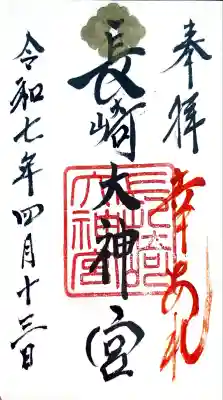 奉拝
幸あれ
長崎大神宮
長崎大神宮
令和七年四月十三日